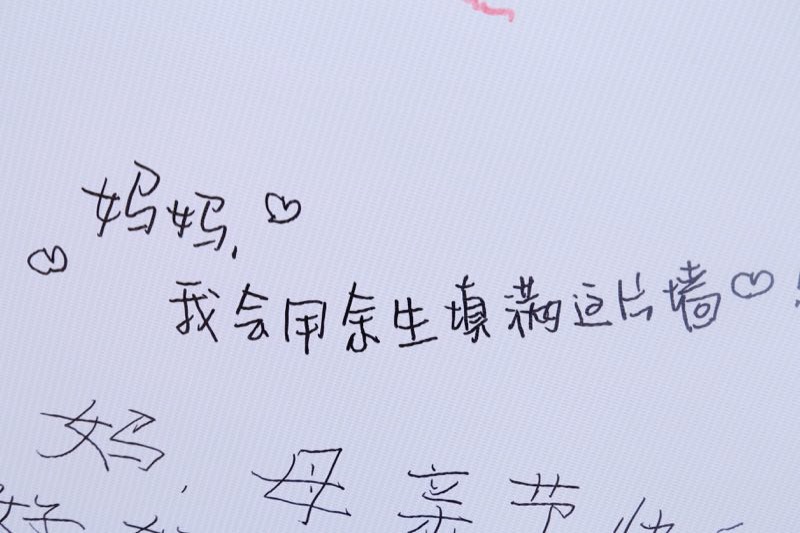 妈妈,
我会用余生填满这片墙!
妈,母亲节快
好